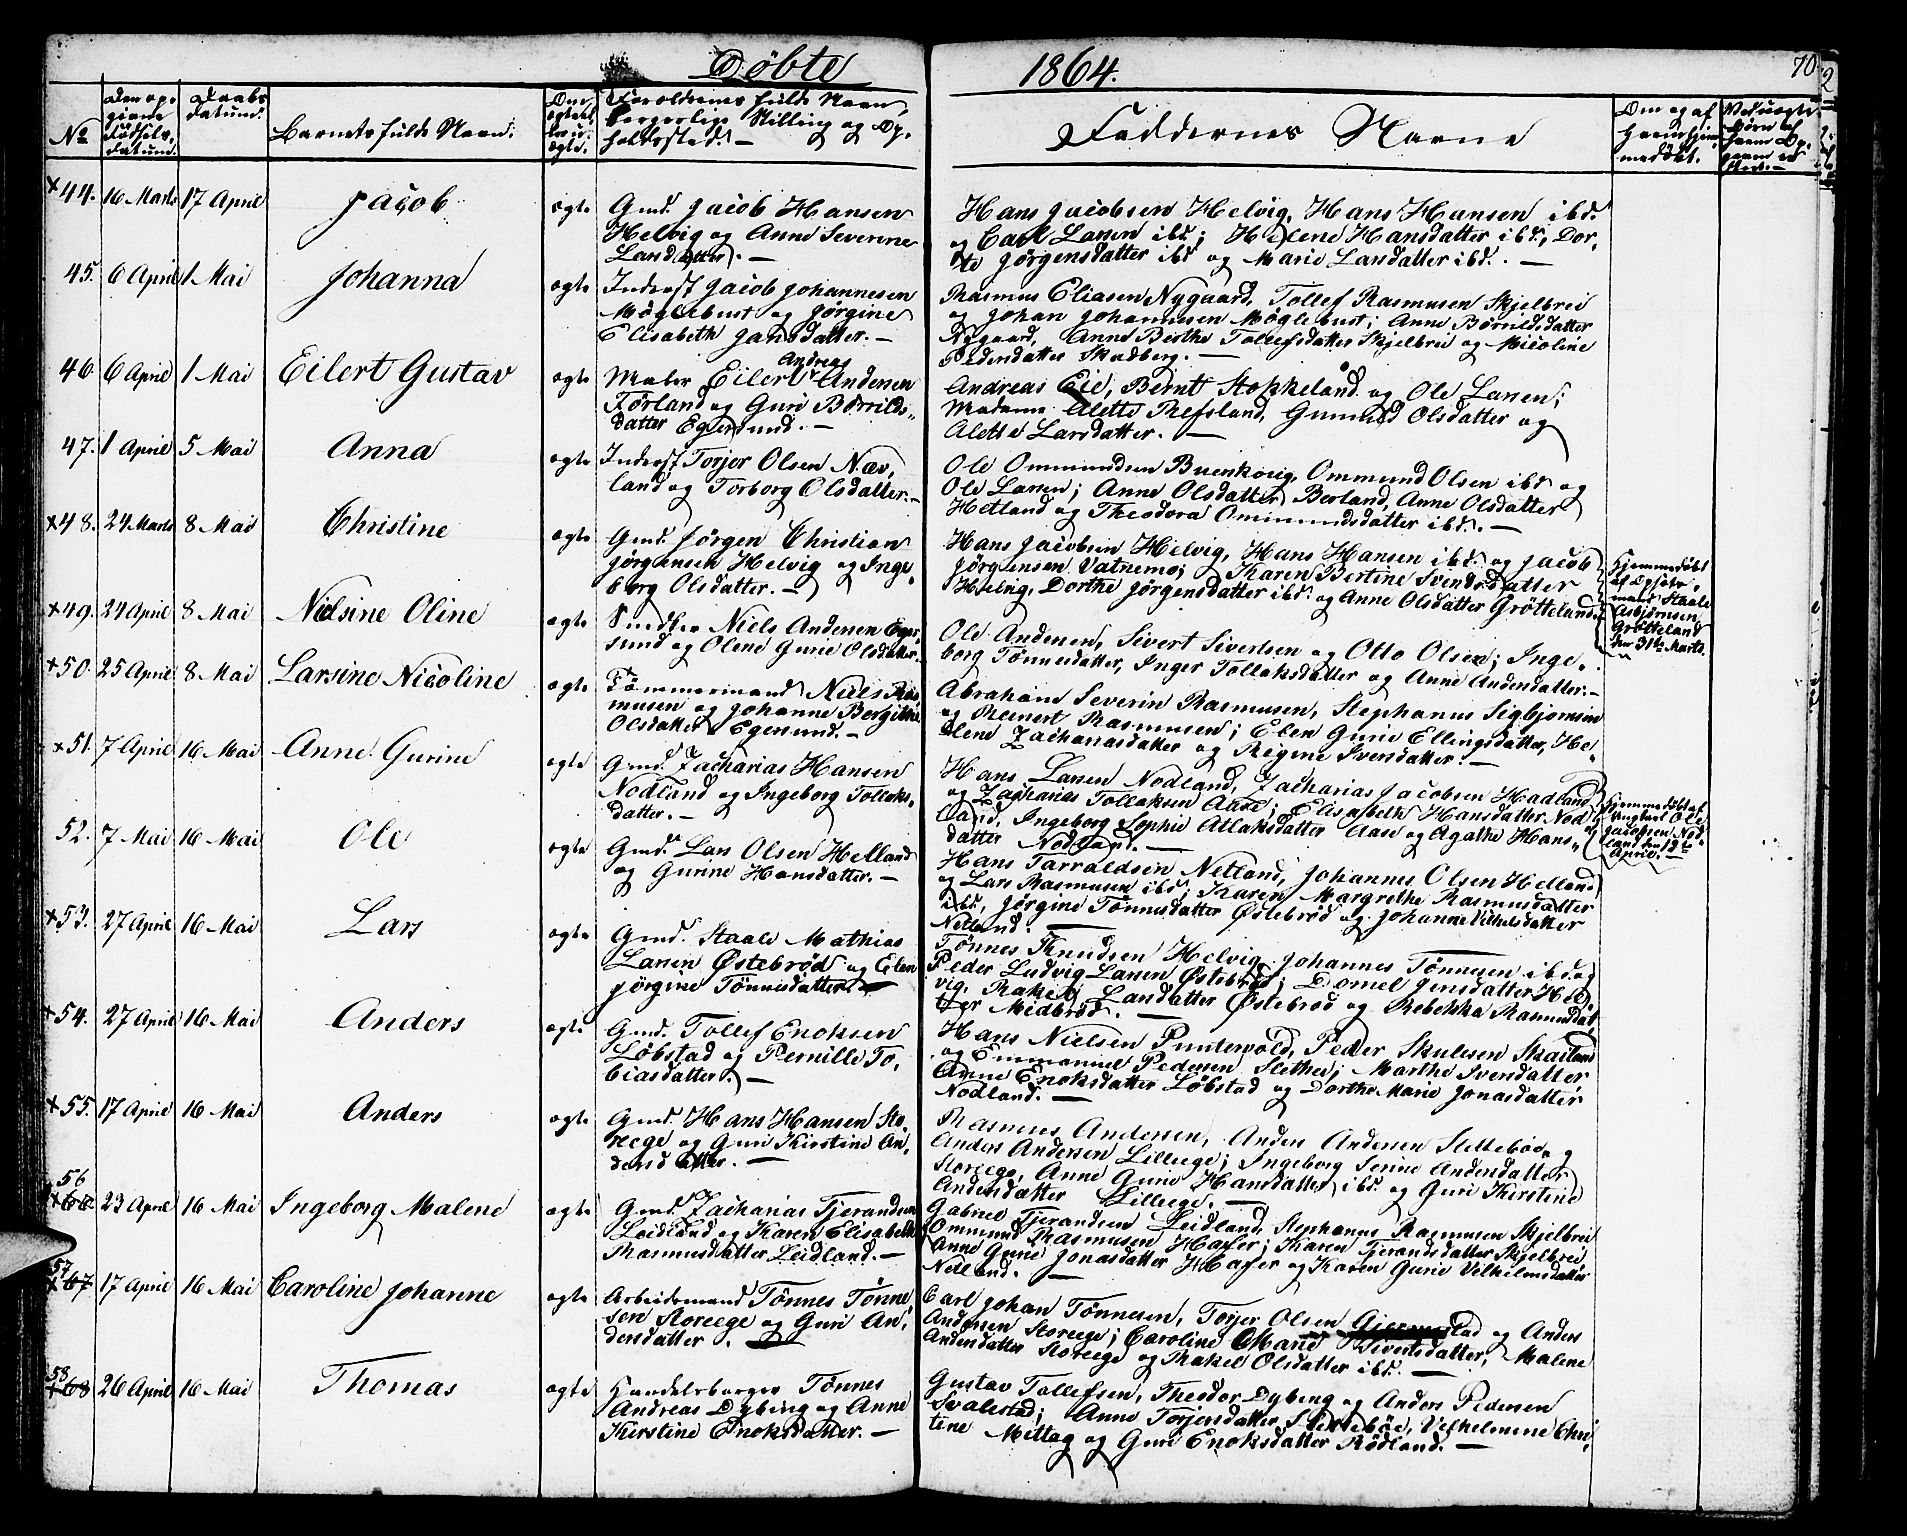 Døbte 1864.
70.
No
Den opgivne Fødselsdatum.
Daabsdatum.
Barnets fulde Navn.
Om ægte eller uægte.
Forældrenes fulde Navn, borgerlige Stilling og Opholdssted. —
Faddernes Navne
Om og af hvem hjemmedøbt.
44. 16 Marts 17 April Jacob ægte Gmd. Jacob Hansen
Helvig og Anne Severine
Larsdatter. —
Hans Jacobsen Helvig, Hans Hansen ibd.
og Carl Larsen ibd; Helene Hansdatter ibd, Dor,
te Jørgensdatter ibd og Marie Larsdatter ibd. —
45. 6 April 1 Mai Johanna ægte Inderst Jacob Johannesen
Møglebust og Jørgine
Elisabeth Jansdatter. —
Rasmus Eliasen Nygaard, Tollef Rasmusen Skjelbrei
og Johan Johannesen Møglebust; Anne Børildsdatter
Nygaard, Anne Berthe Tollefsdatter Skjelbrei og Nicoline
Pedersdatter Skadberg. —
46 6 April 1 Mai Eilert Gustav ægte Maler Eilert Andreas Andersen
Førland og Guri Børrilds,
datter Egersund. —
Andreas Eie, Bernt Stokkeland og Ole Larsen;
Madame Alette Refsland, Gunnild Olsdatter og
Alette Larsdatter. —
47. 1 April 5 Mai Anna ægte Inderst Torjer Olsen Næv,
land og Torborg Olsdatter. —
Ole Ommundsen Buenskoug, Ommund Olsen ibd og
Ole Larsen; Anne Olsdatter Berland, Anne Olsdatter
Hetland og Theodora Ommundsdatter ibd. —
48. 24 Marts 8 Mai Christine ægte Gmd. Jørgen Christian
Jørgensen Helvig og Inge,
borg Olsdatter. —
Hans Jacobsen Helvig, Hans Hansen ibd. og Jacob
Jørgensen Vatnemo; Karen Bertine Svendsdatter
Helvig, Dorthe Jørgensdatter ibd. og Anne Olsdatter Grøtteland.
Hjemmedøbt
af Opsidder,
mand Staale
Asbjørnsen
Grøtteland
den 31te Marts.
49. 24 April 8 Mai Nielsine Oline ægte Snedker Niels Andersen Eger,
sund og Olene Gurie Olsdatter. —
Ole Andersen, Sivert Sivertsen og Otto Olsen; Inge,
borg Tønnesdatter, Inger Tollaksdatter og Anne Andersdatter. —
50. 25 April 8 Mai Larsine Nicoline ægte Tømmermand Niels Ras,
musen og Johanne Bergithe
Olsdatter Egersund. —
Abraham Severin Rasmusen, Stephanus Sigbjørnsen
og Reinert Rasmusen; Elen Gurie Ellingsdatter, He,
lene Zachariasdatter og Regine Iversdatter. —
51. 7 April 16 Mai Anne Gurine ægte Gmd. Zacharias Hansen
Nodland og Ingeborg Tollaks,
datter. —
Hans Larsen Nodland, Zacharias Jacobsen Hadland
og Zacharias Tollaksen Aase; Elisabeth Hansdatter Nod,
land, Ingeborg Sophie Atlaksdatter Aase og Agathe Hans,
datter Nodland. —
Hjemmedøbt af
Ungkarl Ole
Jacobsen Nod,
land den 12te
April. —
52. 7 Mai 16 Mai Ole ægte Gmd. Lars Olsen Helland
og Gurine Hansdatter. —
Hans Tarraldsen Netland, Johannes Olsen Helland
og Lars Rasmusen ibd; Karen Margrethe Rasmusdatter
ibd, Jørgine Tønnesdatter Østebrød og Johanne Vilhelsdatter
Netland. —
53. 27 April 16 Mai Lars ægte Gmd. Staale Mathias
Larsen Østebrød og Elen
Jørgine Tønnesdatter. —
Tønnes Knudsen Helvig, Johannes Tønnesen ibd. og
Peder Ludvig Larsen Østebrød; Domel Jensdatter Hel,
vig, Rakel Larsdatter Østebrød og Rebekka Rasmusdat,
ter Midbrød. —
54. 27 April 16 Mai Anders ægte Gmd. Tollef Enoksen
Løbstad og Pernille To,
biasdatter. —
Hans Nielsen Puntervold, Peder Skulesen Skailand
og Emmanuel Pedersen Slethei; Marthe Svensdatter
Anne Enoksdatter Løbstad og Dorthe Marie Jonasdatter
Nodland. —
55. 17 April 16 Mai Anders ægte Gmd. Hans Hansen Sto,
reege og Guri Kirstine An,
dersdatter. —
Rasmus Andersen, Anders Andersen Slettebøe, og
Anders Andersen Lilleege; Ingeborg Serine Andersdatter
Storeege, Anne Gurie Hansdatter ibd. og Guri Kirstine
Andersdatter Lilleege. —
56 23 April 16 Mai Ingeborg Malene ægte Gmd. Zacharias Tjerandsen
Leidland og Karen Elisabeth
Rasmusdatter Leidland. —
Gabriel Tjerandsen Leidland, Stephanus Rasmusen Skjelbrei
Ommund Rasmusen Hafsø; Karen Tjerandsdatter Skjelbrei
Anne Gurie Jonasdatter Hafsø og Karen Gurie Vilhelmsdatter
Netland. —
57 17 April 16 Mai Caroline Johanne ægte Arbeidsmand Tønnes Tønne,
sen Storeege og Guri An,
dersdatter. —
Carl Johan Tønnesen, Torjer Olsen Gjermestad og Anders
Andersen Storeege; Caroline Marie Sivertsdatter, Malene
Andersdatter Storeege og Rakel Olsdatter ibd. —
58 26 April 16 Mai Thomas ægte Handelsborger Tønnes
Andreas Dybing og Anne
Kirstine Enoksdatter. —
Gustav Tollefsen, Theodor Dybing og Anders Pedersen
Svalestad; Anne Torjersdatter Slettebøe, Vilhelmine Chri,
stine Mittag og Guri Enoksdatter Rødland. —